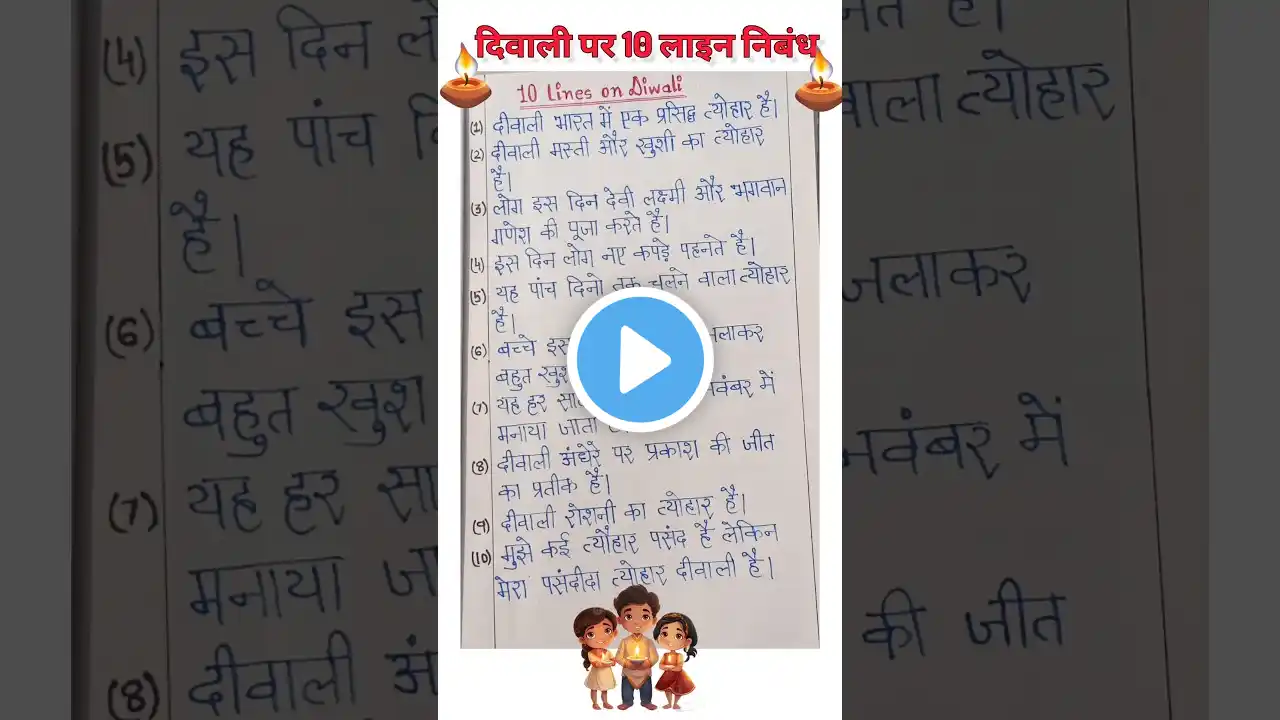 दिवाली पर 10 लाइन निबंध
10 Lines on Diwali
(1) दीवाली भारत में एक प्रसिद्ध त्योहार है।
(2) दीवाली मस्ती और खुशी का त्योहार
है।
(3) लोग इस दिन देवी लक्ष्मी और भगवान
गणेश की पूजा करते है।
(4) इस दिन लोग नए कपड़े पहनते है।
(5) यह पांच दिनो तक चलने वाला त्योहार
है।
(6) बच्चे इस जलाकर
बहुत खुश
(7) यह हर सा नवंबर में
मनाया जाता
(8) दीवाली अंधेरे पर प्रकाश की जीत
का प्रतीक है।
(9) दीवाली रोशनी का त्योहार है।
(10) मुझे कई त्यौहार पसंद है लेकिन
मेरा पसंदीदा त्योहार दीवाली है।
(4) इस दिन
(5) यह पांच
है।
(6) बच्चे इस
बहुत खुश
(7) यह हर सा
मनाया
(8) दीवाली
वाला त्योहार
जलाकर
नवंबर में
की जीत